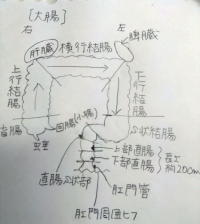 [大腸]
右
左
肝臓
横行結腸
脾臓
上行結腸
下行結腸
盲腸
虫垂
回腸(小腸)
S状結腸
上部直腸
下部直腸
長さ
約200m
直腸S状部
肛門管
肛門周囲ヒフ